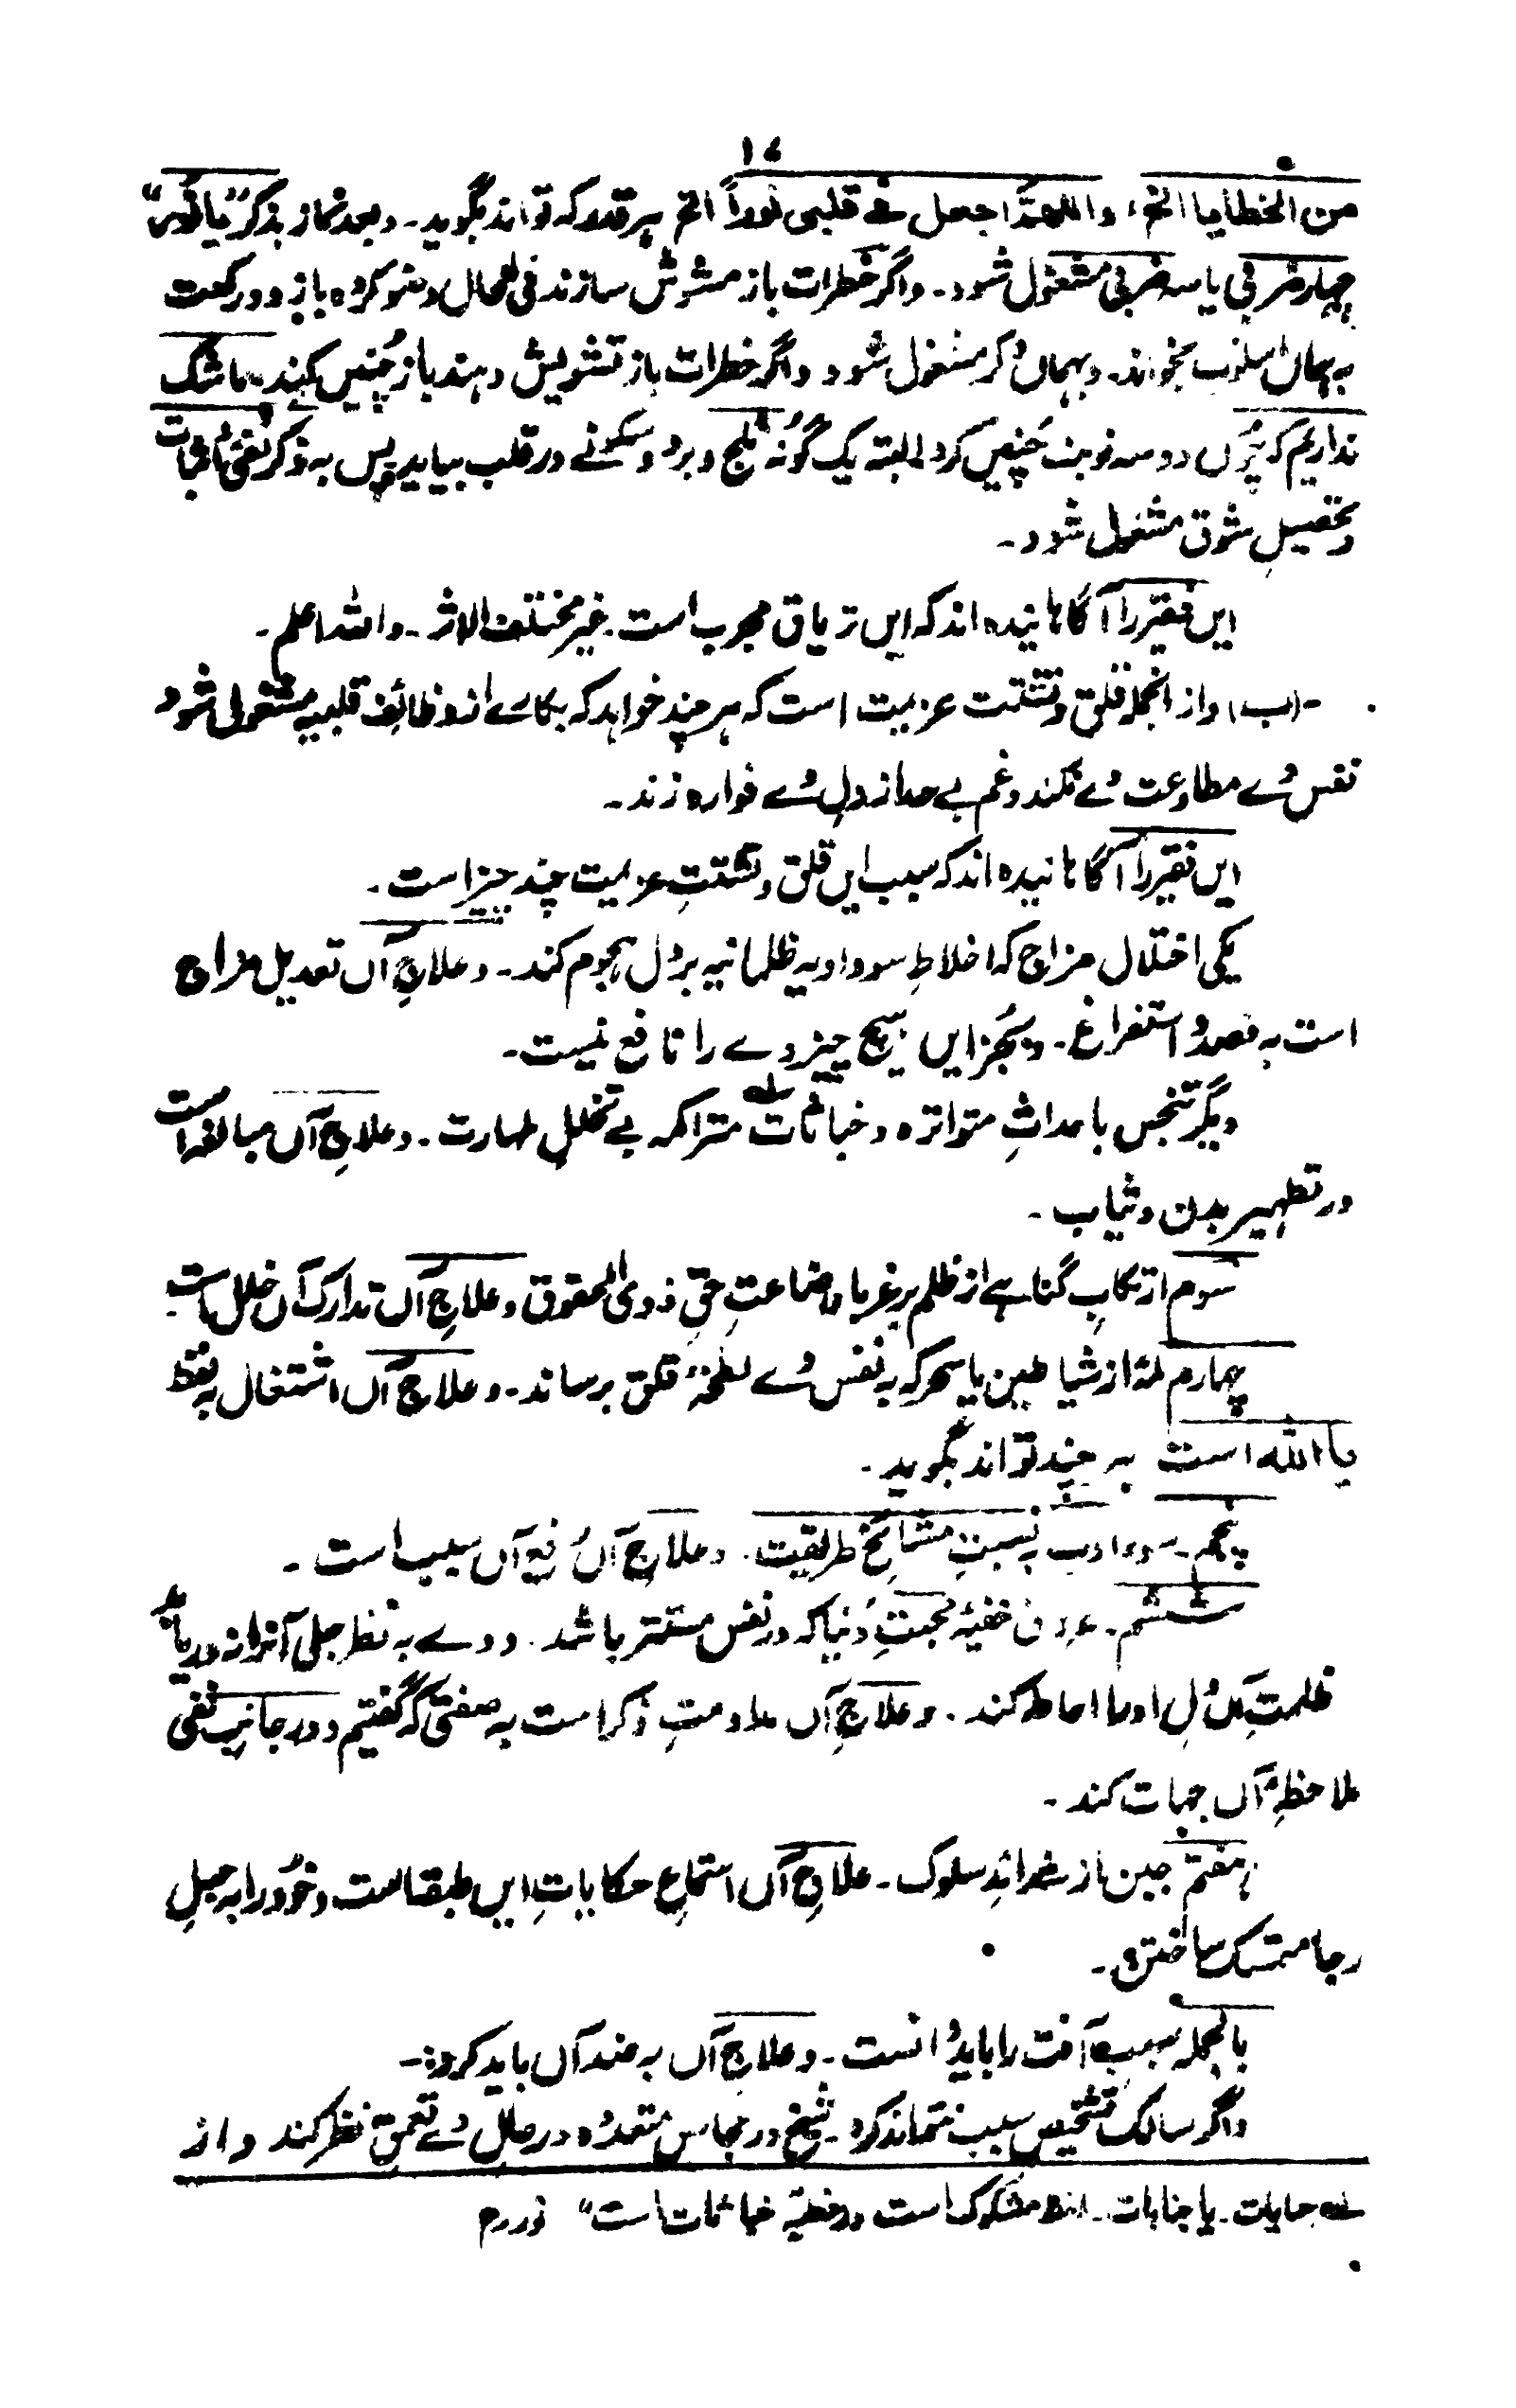 ۱۷
من الخطایا الخ، و اللھمّ اجعل فے قلبی نوراً الخ ہر قدر کہ تواند بگوید۔ و بعد نماز بذکر "یا نور"
چہار ضربی یا سہ ضربی مشغول شود۔ و اگر خطرات باز مشوش سازند فی الحال وضو کردہ باز دو رکعت
بہ ہماں اسلوب بخواند۔ و بہماں ذکر مشغول شود و اگر خطرات باز تشویش دہند باز چنیں کند، ما شک
نداریم کہ چوں دو سہ نوبت چنیں کرد البتہ یک گونہ ثلج و برد و سکونے در قلب بیاید پس بہ ذکر نفی و اثبات
و تحصیلِ شوق مشغول شود۔
ایں فقیر را آگاہانیدہ اند کہ ایں تریاق مجرب است۔ غیر مختلف الاثر۔ واللہ اعلم۔
۔(ب) و از انجملہ قلق و تشتت عزیمت است کہ ہر چند خواہد کہ بکارے از وظائف قلبیہ مشغول شود
نفس وے مطاوعت وے نکند و غم بے حد از دلِ وے فوارہ زند۔
ایں فقیر را آگاہانیدہ اند کہ سبب ایں قلق و تشتتِ عزیمت چند چیز است۔
یکی اختلال مزاج کہ اخلاطِ سوداویہ ظلمانیہ بر دل ہجوم کند۔ و علاجِ آں تعدیل مزاج
است بہ فصد و استفراغ۔ و بجز ایں ہیچ چیز وے را نافع نیست۔
دیگر تنجس باحداثِ متواترہ و خباثات۱؎ متراکمہ بے تخلل طہارت۔ و علاجِ آں مبالغہ است
در تطہیر بدن و ثیاب۔
سوم ارتکابِ گناہے از ظلم بر غربا و اضاعتِ حقِ ذوی الحقوق و علاجِ آں تدارک آں خلل است۔
چہارم لمۂ از شیاطین یا سحر کہ بہ نفس وے لطمۂ قلق برساند۔ و علاجِ آں اشتغال بہ لفظ
یا اللہ است ہر چند تواند بگوید۔
پنجم۔ سوء ادب بہ نسبتِ مشائخ طریقت۔ و علاجِ آں رفع آں سبب است۔
ششم۔ عروق خفیۂ محبتِ دنیا کہ در نفس مستتر باشد۔ و وے بہ نظر جلی آنرا نہ دریابد
ظلمتِ آں دلِ او را احاطہ کند۔ و علاجِ آں مداومتِ ذکر است بہ صفتی کہ گفتیم و در جانبِ نفی
ملاحظۂ آں جہات کند۔
ہفتم جبن از شدائدِ سلوک۔ علاجِ آں استماعِ حکایاتِ ایں طبقہ است و خود را بہ حبلِ
رجا متمسک ساختن۔
بالجملہ سببِ آفت را باید دانست۔ و علاجِ آں بہ ضد آں باید کرد:۔
و اگر سالک تشخیص سبب نتواند کرد۔ شیخ در مجالس متعددہ در حالِ وے تعمقِ نظر کند و از
۱؎ جبایات۔ یا جنابات۔ لفظ مشکوک است در خطیہ خباثات است"